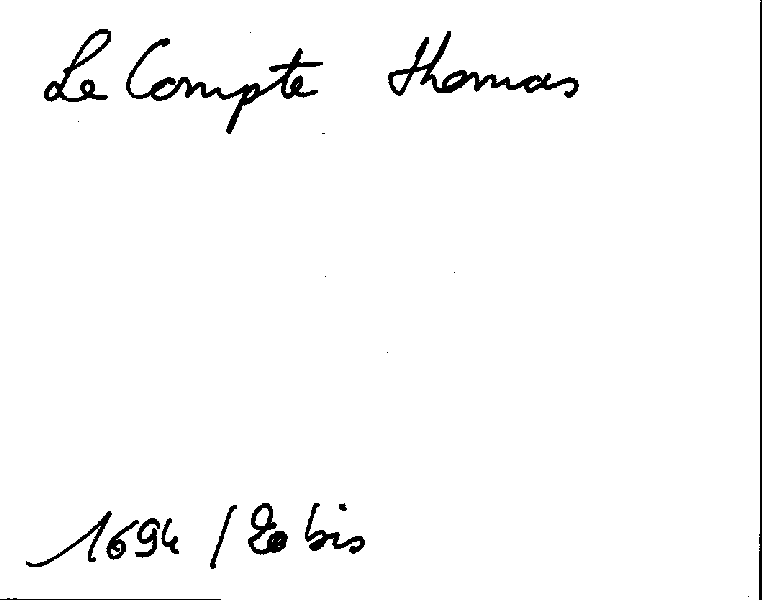 Le Compte Thomas
1694 / 20 bis